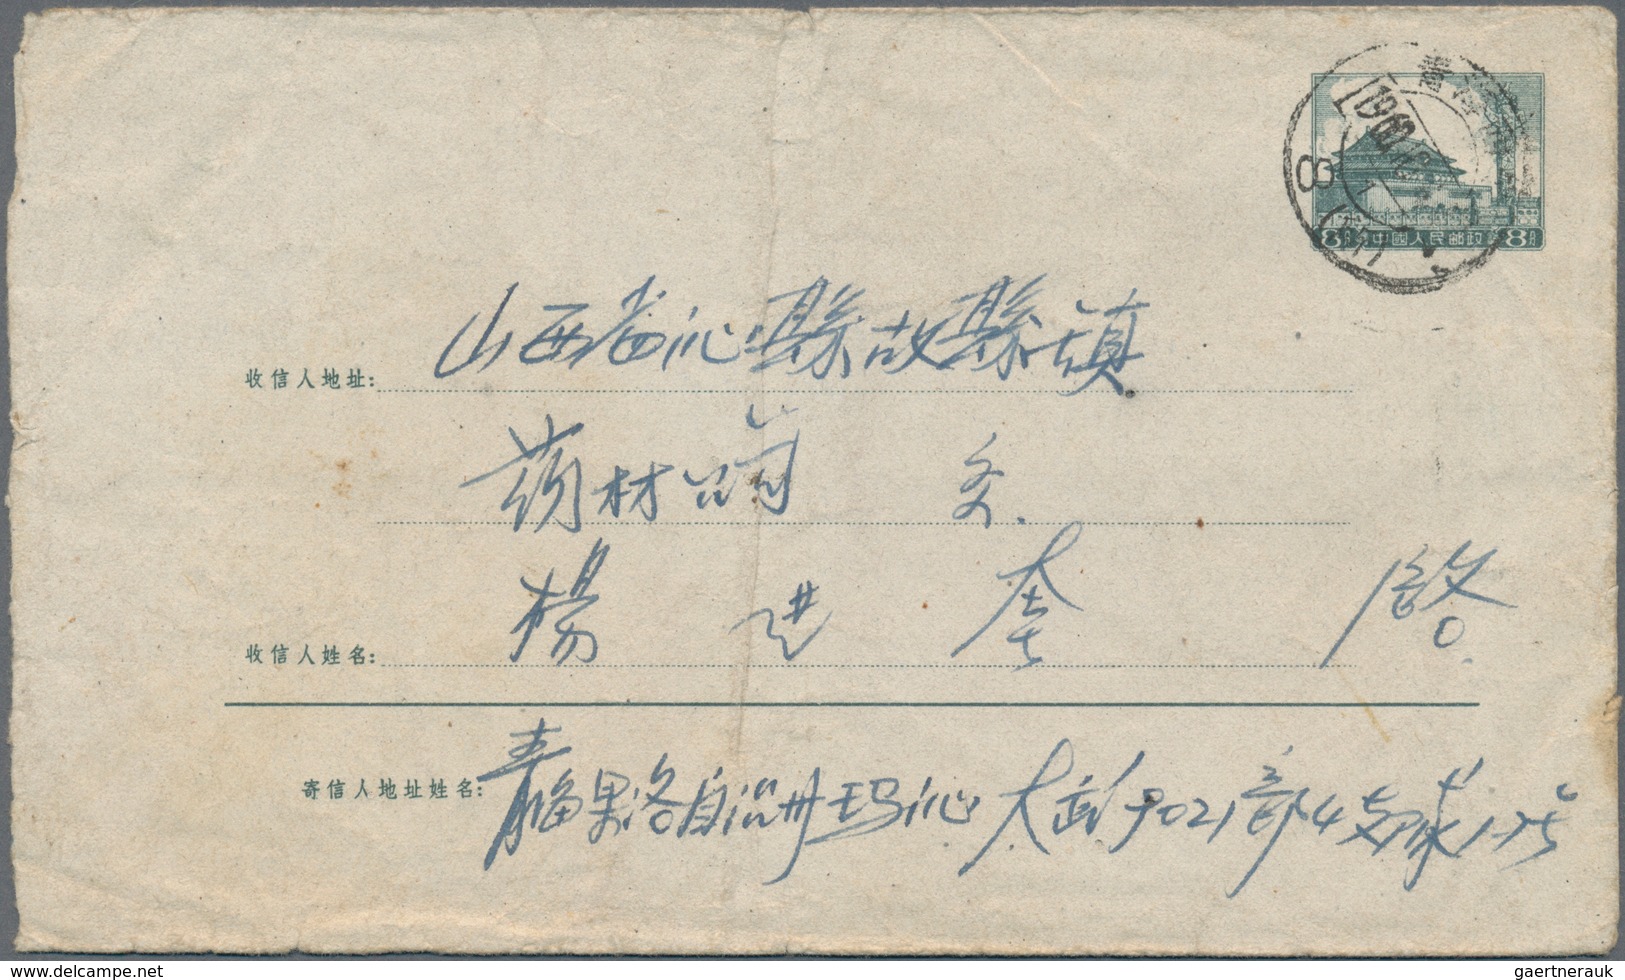 青海
1962
8
8分 中國人民邮政 8分
收信人地址: 山西省沁縣故縣鎮
药材 交
收信人姓名: 楊进奎 啓
寄信人地址姓名: 青海果洛自治州玛沁大武9021部4支隊1-75
www.delcampe.net
gaertnerauk